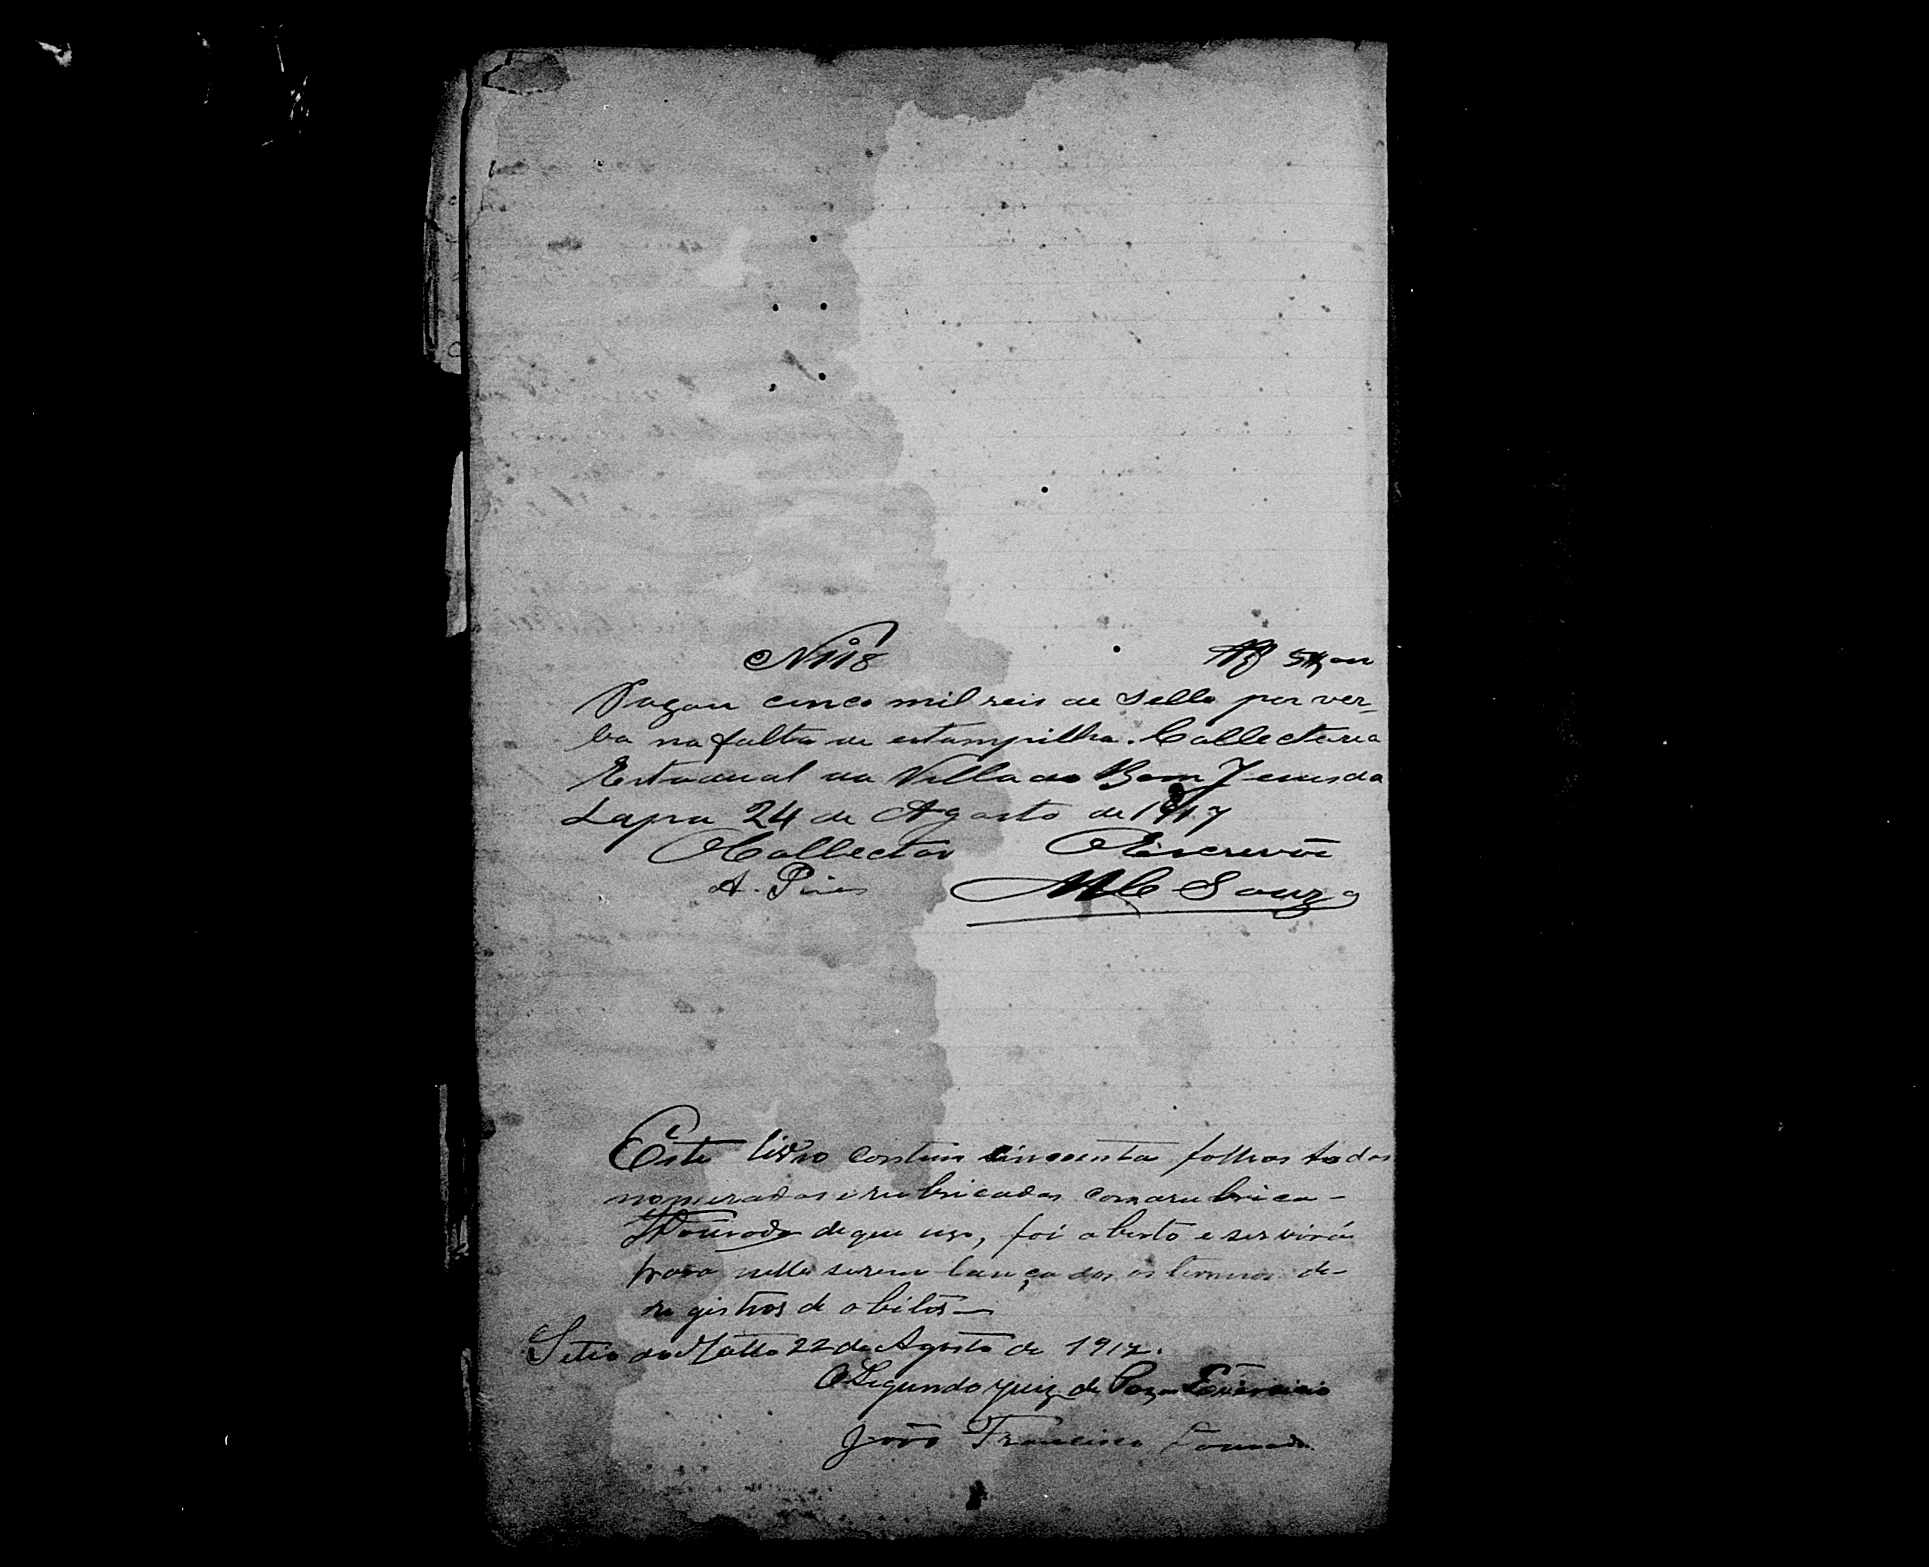 Nº 118
Pagou cinco mil reis de Sello por ver-
ba na falta de estampilha. Collectoria
Estadual da Villa do Bom Jesus da
Lapa 24 de Agosto de 1917
O Collector O Escrivão
A. Pires M C Souza
Este livro contem cincoenta folhas todas
numeradas e rubricadas com a rubrica -
Dourado de que uso, foi aberto e servirá
para nelle serem lançados os termos de
registros de obitos -
Sitio do Matto 22 de Agosto de 1917.
O Segundo juiz de Paz em Exercicio
João Francisco Dourado